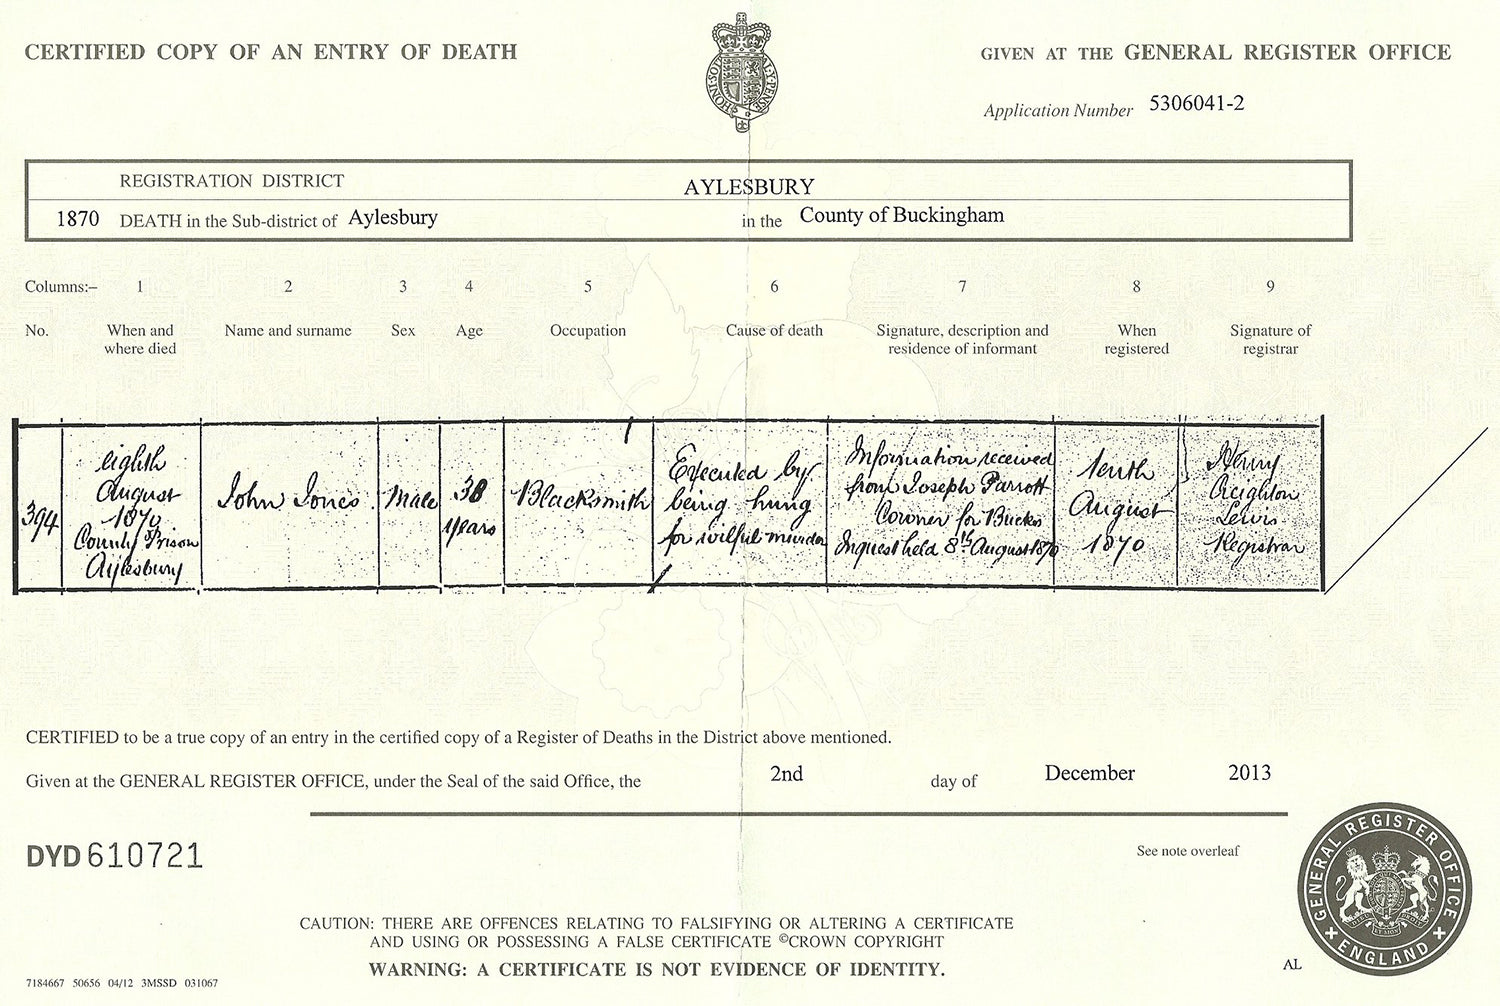 CERTIFIED COPY OF AN ENTRY OF DEATH
GIVEN AT THE GENERAL REGISTER OFFICE
HONI·SOI
Y·PENSE
Application Number 5306041-2
REGISTRATION DISTRICT AYLESBURY
1870 DEATH in the Sub-district of Aylesbury in the County of Buckingham
Columns:– 1 2 3 4 5 6 7 8 9
No. When and Name and surname Sex Age Occupation Cause of death Signature, description and When Signature of
where died residence of informant registered registrar
394
eighth
August
1870
County Prison
Aylesbury
John Jones
Male
38
years
Blacksmith
Executed by
being hung
for wilful murder
Information received
from Joseph Parrott
Coroner for Bucks
Inquest held 8th August 1870
tenth
August
1870
Henry
Creighton
Lewis
Registrar
CERTIFIED to be a true copy of an entry in the certified copy of a Register of Deaths in the District above mentioned.
Given at the GENERAL REGISTER OFFICE, under the Seal of the said Office, the 2nd day of December 2013
DYD 610721
See note overleaf
CAUTION: THERE ARE OFFENCES RELATING TO FALSIFYING OR ALTERING A CERTIFICATE
AND USING OR POSSESSING A FALSE CERTIFICATE ©CROWN COPYRIGHT
WARNING: A CERTIFICATE IS NOT EVIDENCE OF IDENTITY.
7184667 50656 04/12 3MSSD 031067
AL
GENERAL REGISTER OFFICE
ENGLAND